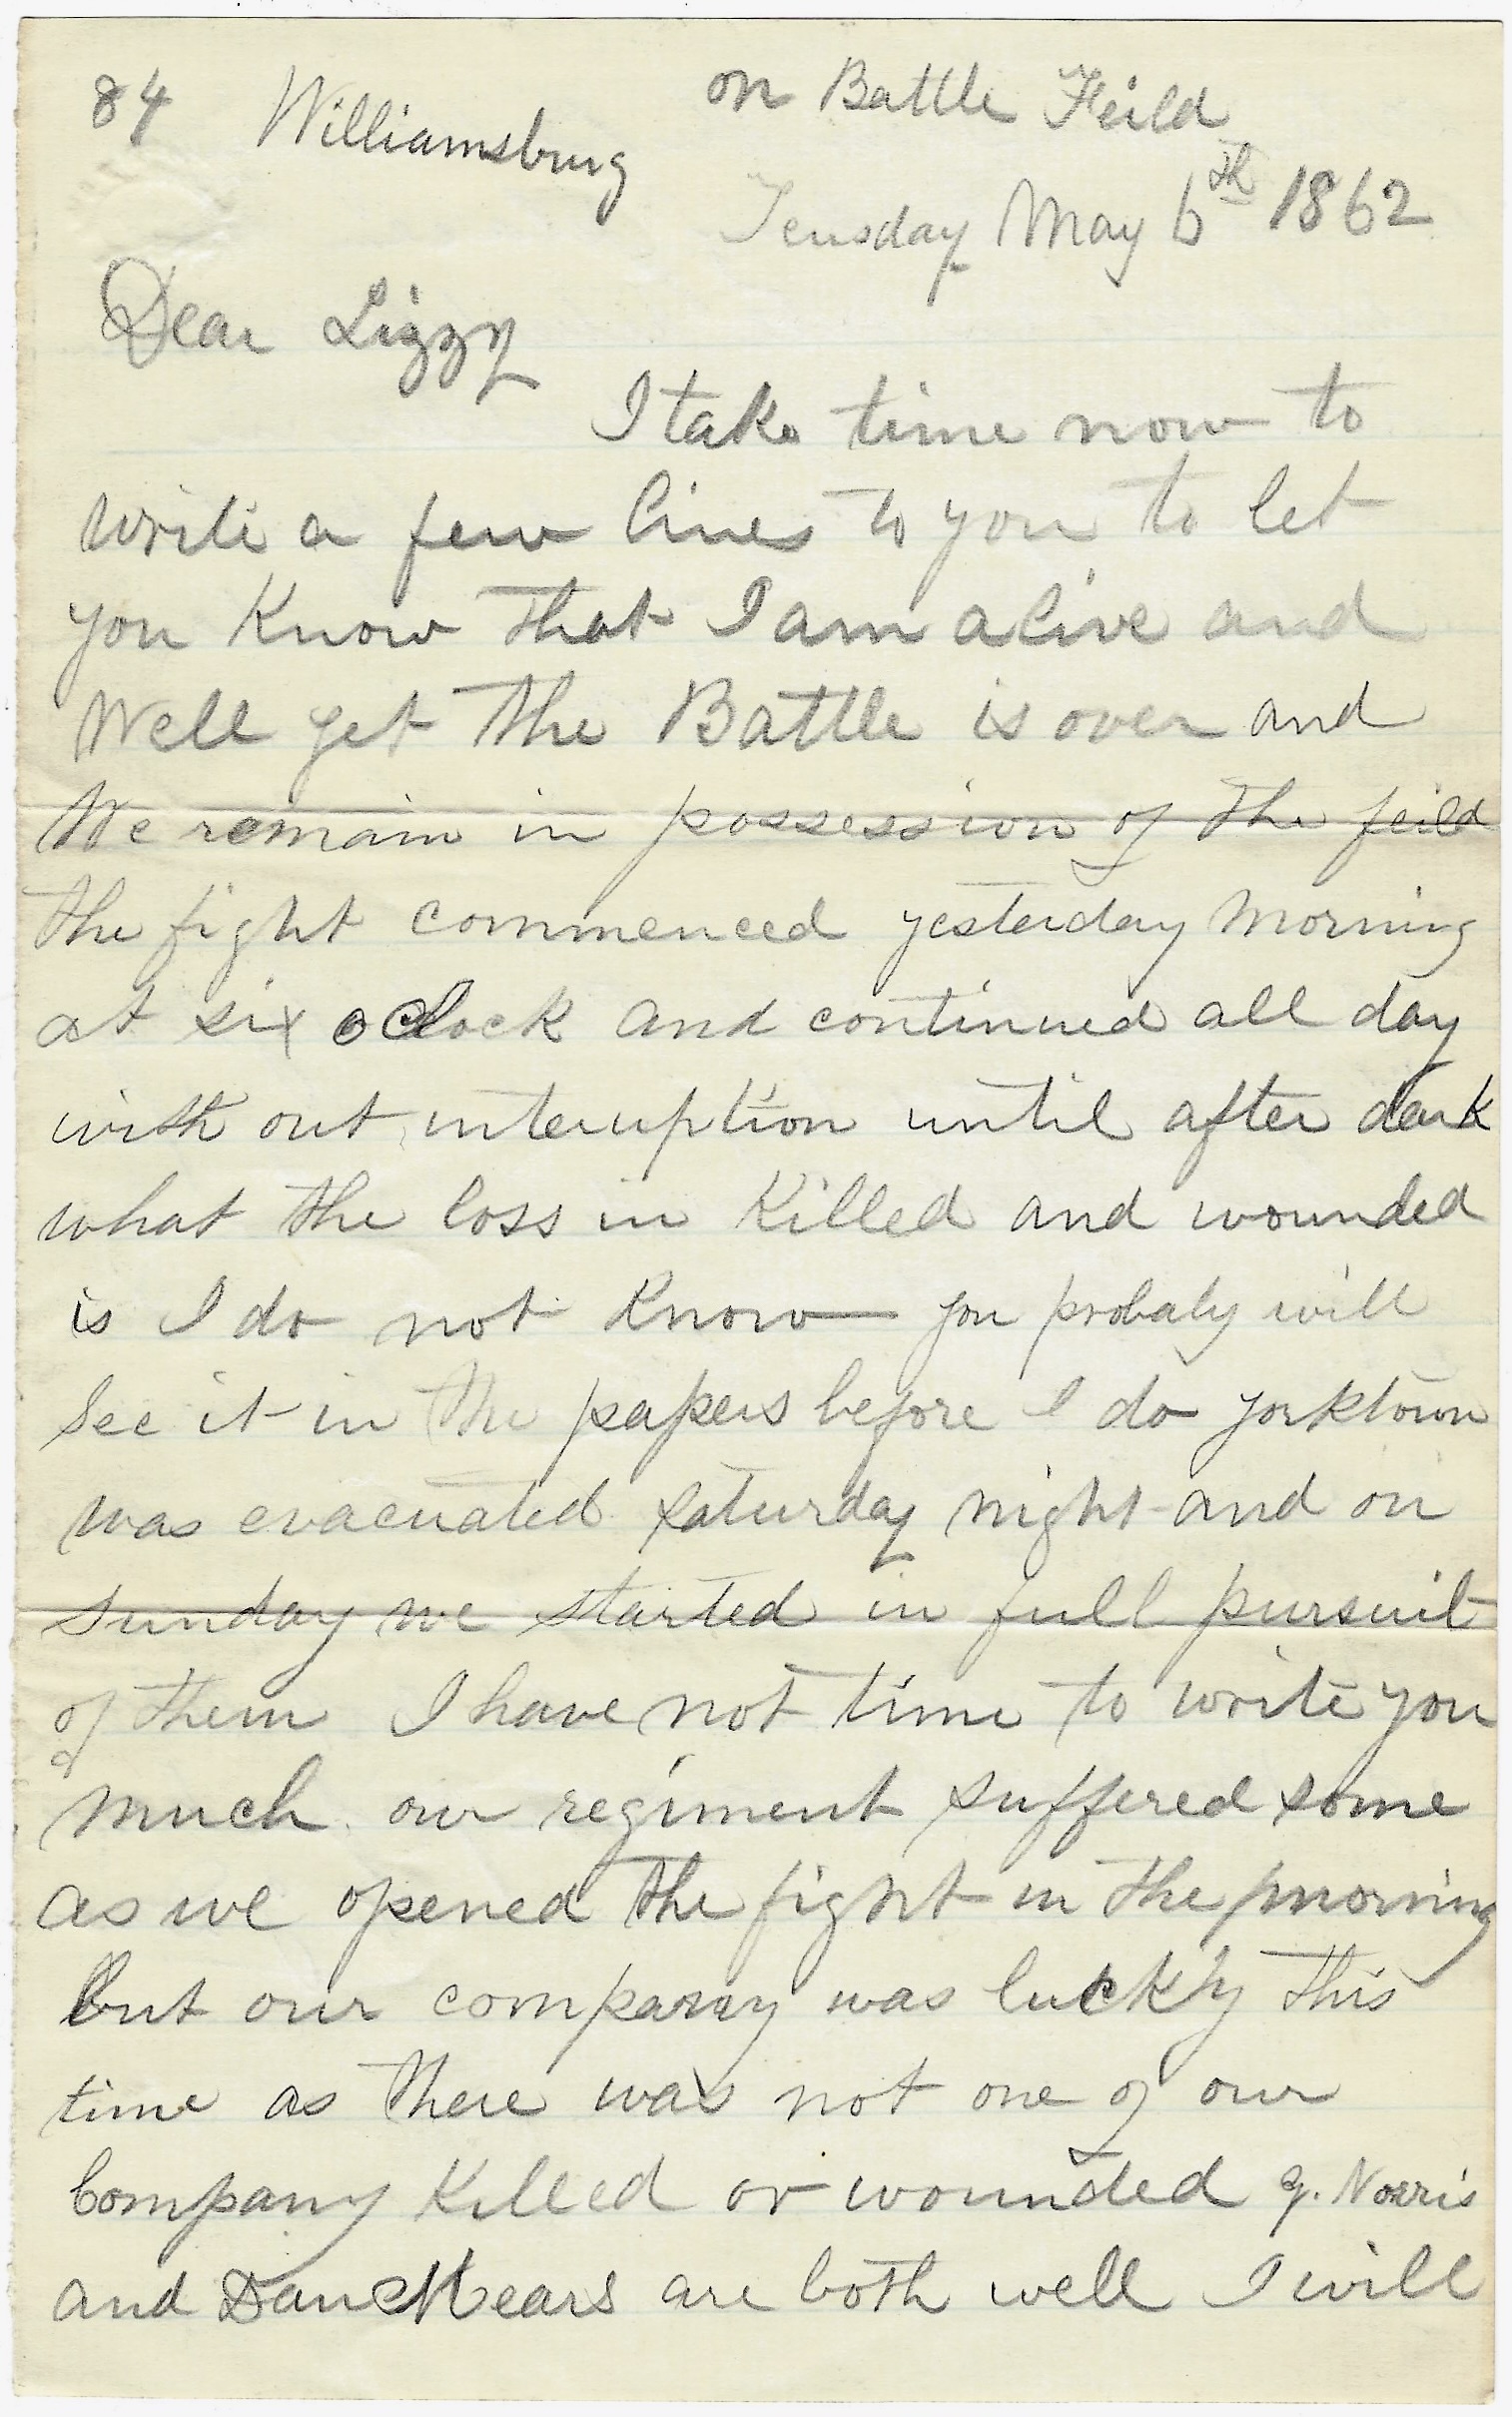 84 Williamsburg
on Battle Feild
Teusday May 6th 1862
Dear Lizzy
I take time now to
write a few lines to you to let
you Know that I am alive and
Well yet the Battle is over and
We remain in possession of the feild
the fight commenced yesterday morning
at six oclock and continued all day
with out interuption until after dark
what the loss in Killed and wounded
is I do not Know you probaly will
See it in the papers before I do yorktown
was evacuated saturday night and on
sunday we started in full pursuit
of them I have not time to write you
much our regiment suffered some
as we opened the fight in the morning
but our company was lucky this
time as there was not one of our
Company Killed or wounded Norris
and Dan Mears are both well I will